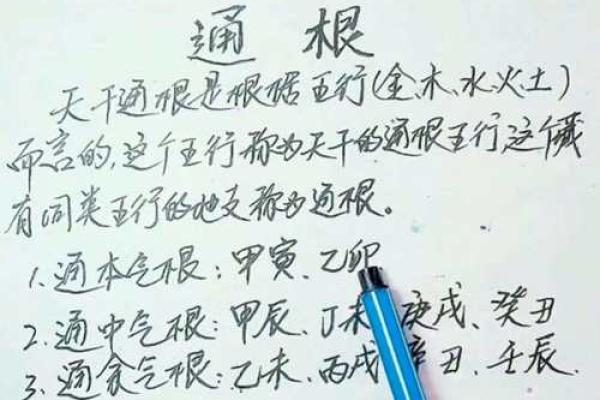 通 根
天干通根是根据五行(金、木、水、火、土)
而言的,这个五行称为天干的通根五行,这个藏
有同类五行的地支称为通根。
1、通本气根:甲寅、乙卯
2、通中气根:甲辰、丁未 庚戌、癸丑
3、通余气根:乙未、丙戌 辛丑、壬辰.